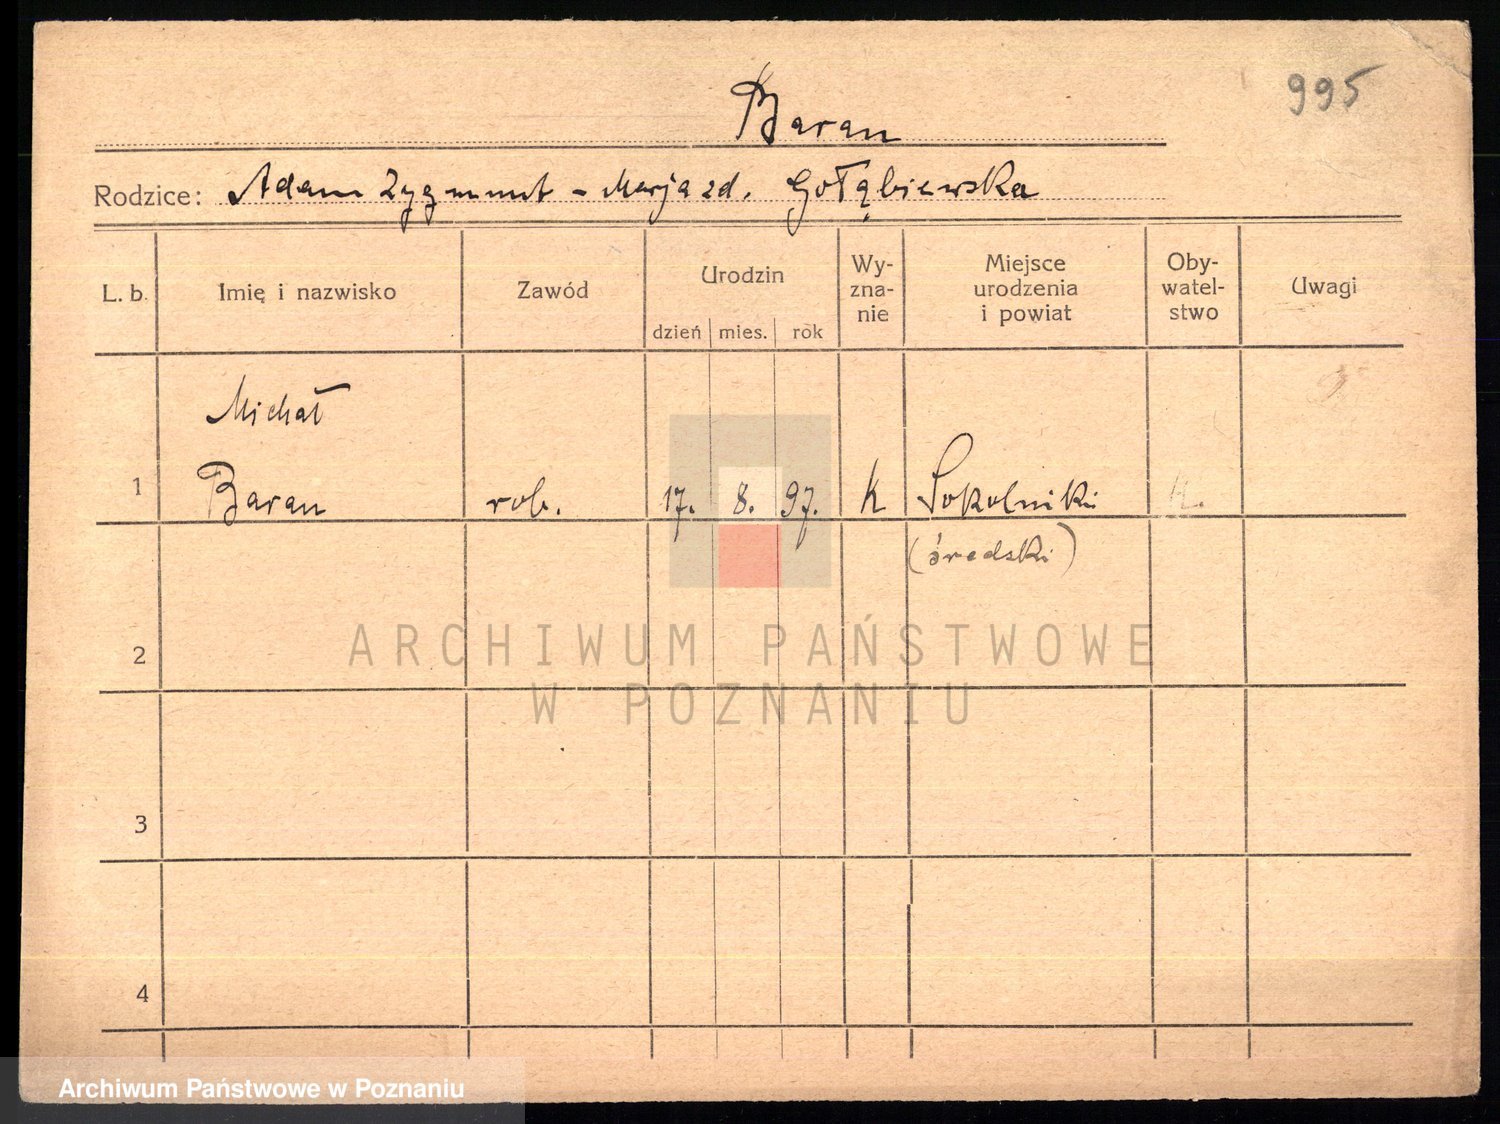 995
Baran
Rodzice: Adam Zygmunt - Marja zd. Gołąbiewska
L. b.
Imię i nazwisko
Zawód
Urodzin
dzień mies. rok
Wy-
zna-
nie
Miejsce
urodzenia
i powiat
Oby-
watel-
stwo
Uwagi
Michał
1 Baran rob. 17. 8. 97. k Sokolniki
(średski)
2
3
4
ARCHIWUM PAŃSTWOWE
W POZNANIU
Archiwum Państwowe w Poznaniu